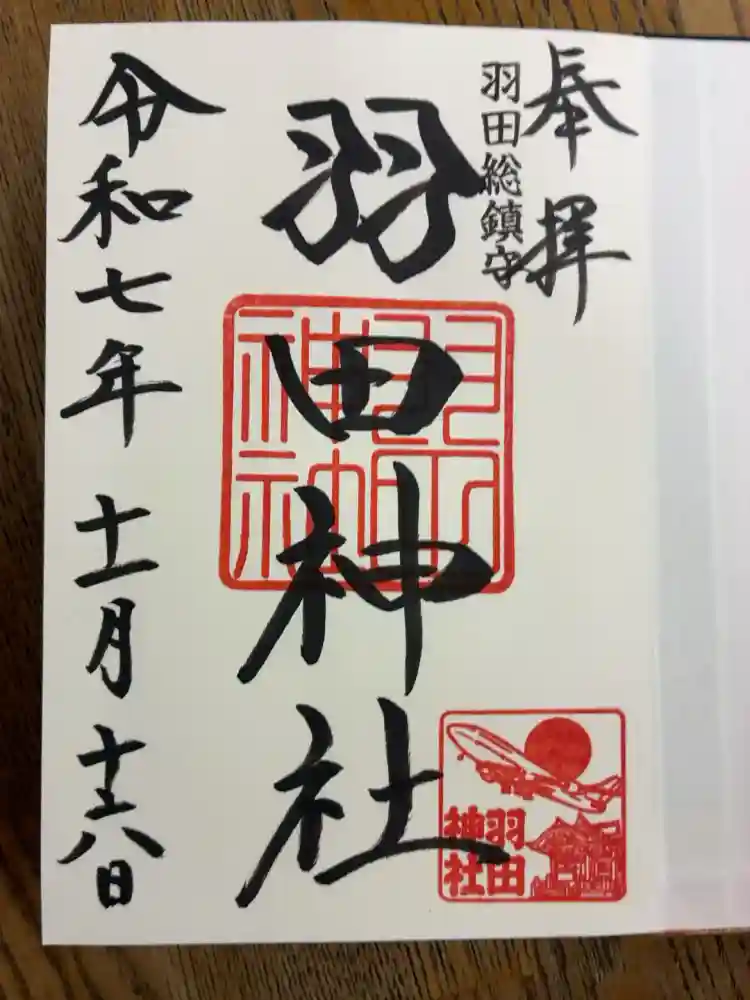 奉拝
羽田総鎮守
羽田神社
令和七年十一月十六日
羽田
神社
羽田
神社